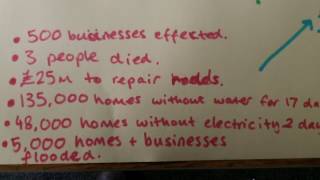 • 500 businesses effected.
• 3 people died.
• £25m to repair roads.
• 135,000 homes without water for 17 da
• 48,000 homes without electricity 2 day
• 5,000 homes + businesses
flooded.